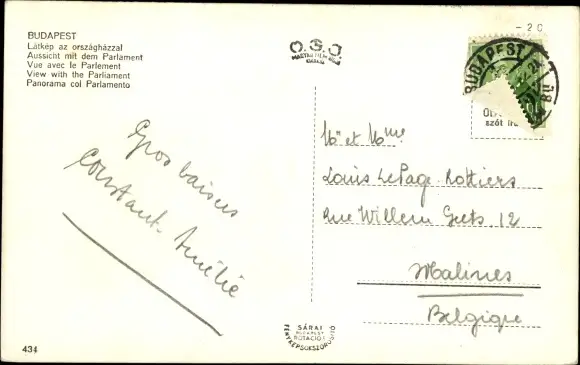 BUDAPEST
Látkép az országházzal
Aussicht mit dem Parlament
Vue avec le Parlement
View with the Parliament
Panorama col Parlamento
- 20
BUDAPEST
szót
Gros baisers
Constant-Amélie
Mr et Mme
Louis LePage-Rottiers
Rue Willem Geets. 12
Malines
Belgique
SÁRAI
BUDAPEST
434